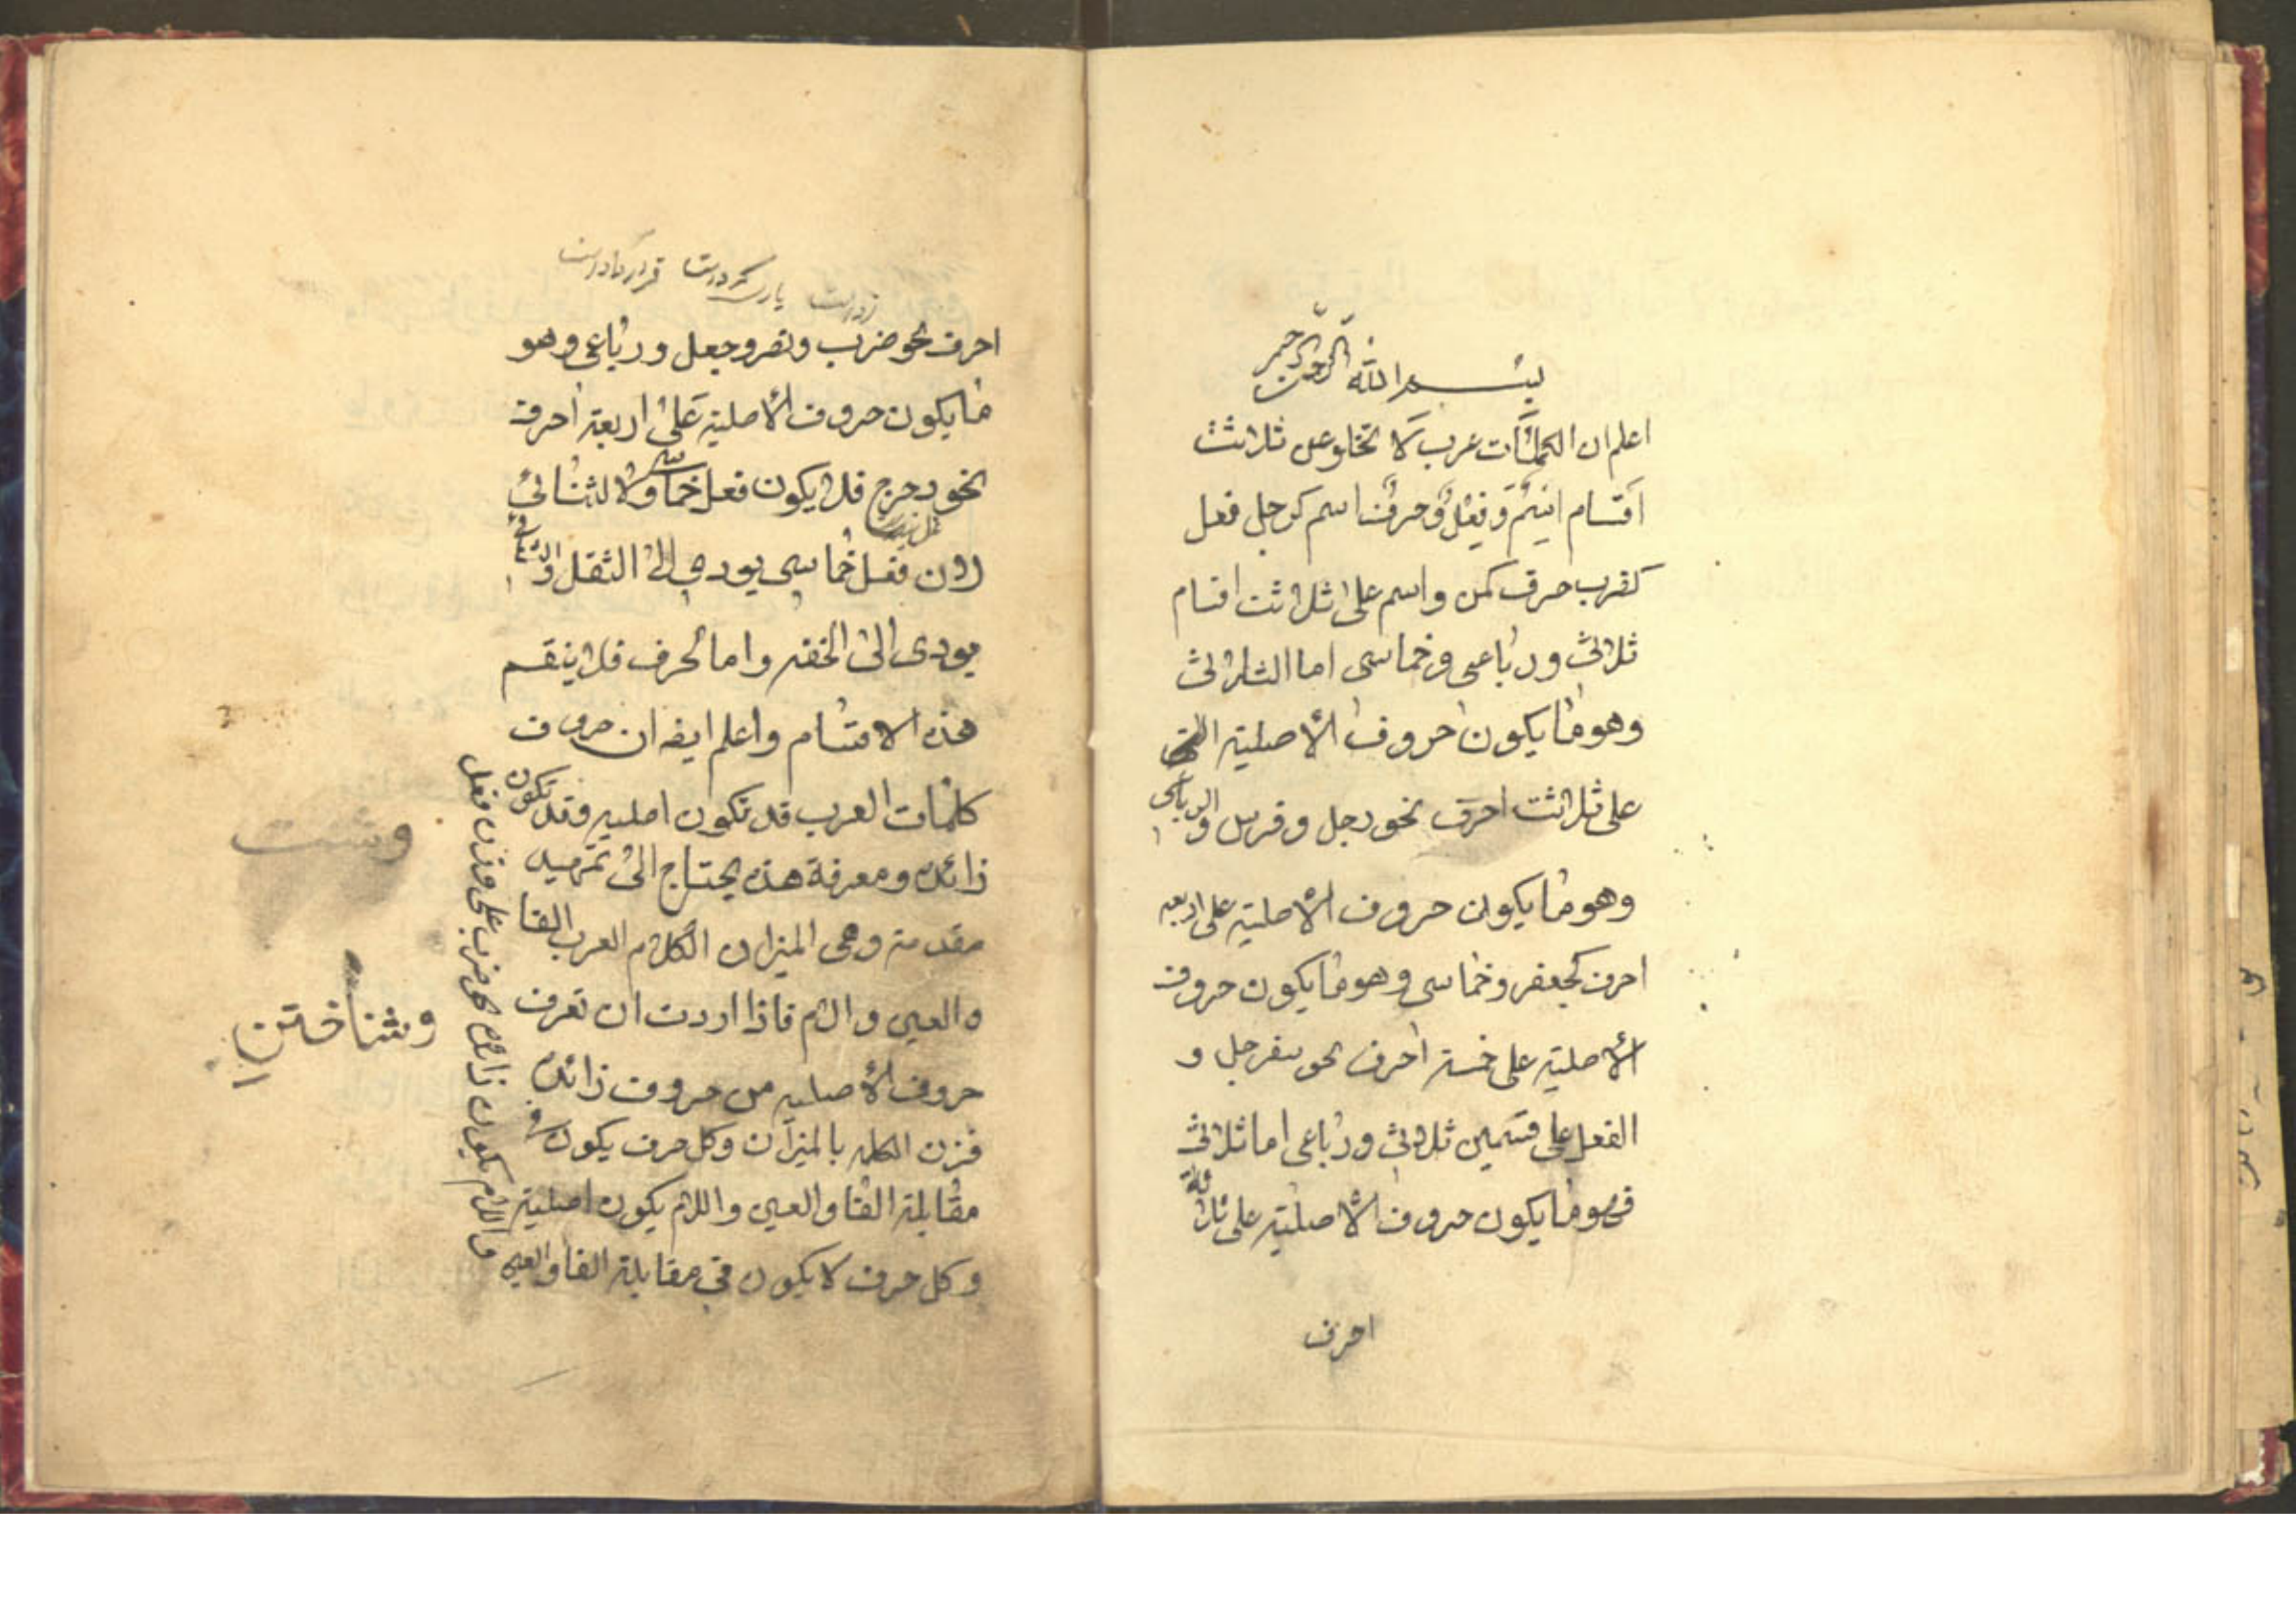 بسم الله الرحمن الرحيم
اعلم ان الكلمات عرب لا تخلو عن ثلاثث
اقسام اسم وفعل وحرف اسم كرجل فعل
كضرب حرف كمن واسم على ثلاثت اقسام
ثلاثى ورباعى وخماسى اما الثلاثى
وهو ما يكون حروف الأصلية
على ثلاثت احرف نحو رجل وفرس والرباعى
وهو ما يكون حروف الأصلية على اربعه
احرف كجعفر وخماسى وهو ما يكون حروف
الأصلية على خمسة احرف نحو سفرجل و
الفعل على قسمين ثلاثى ورباعى اما ثلاثى
فهو ما يكون حروف الأصلية على ثلاثة
احرف
احرف نحو ضرب ونصر وجعل ورباعى وهو
ما يكون حروف الأصلية على اربعة احرف
نحو دحرج فلا يكون فعل خماسى ولا لثنائى
لان فعل خماسى يودي الى الثقل والثنائى
يودى الى الخفه واما لحرف فلا ينقسم
هذه الاقسام واعلم ايضه ان حروف
كلمات العرب قد تكون اصليه وقد تكون
زائده ومعرفة هذه يحتاج الى تمهيد
مقدمة وهى الميزان الكلام العرب الفا
والعين والام فاذا اردت ان تعرف
حروف الأصليه من حروف زائده
فزن الكلمه بالميزان وكل حرف يكون فى
مقابلة الفا والعين واللام يكون اصلية
وكل حرف لا يكون فى مقابلة الفا والعين
واللام يكون زائده نحو ضرب على وزن فعل
وشت
وشناختن